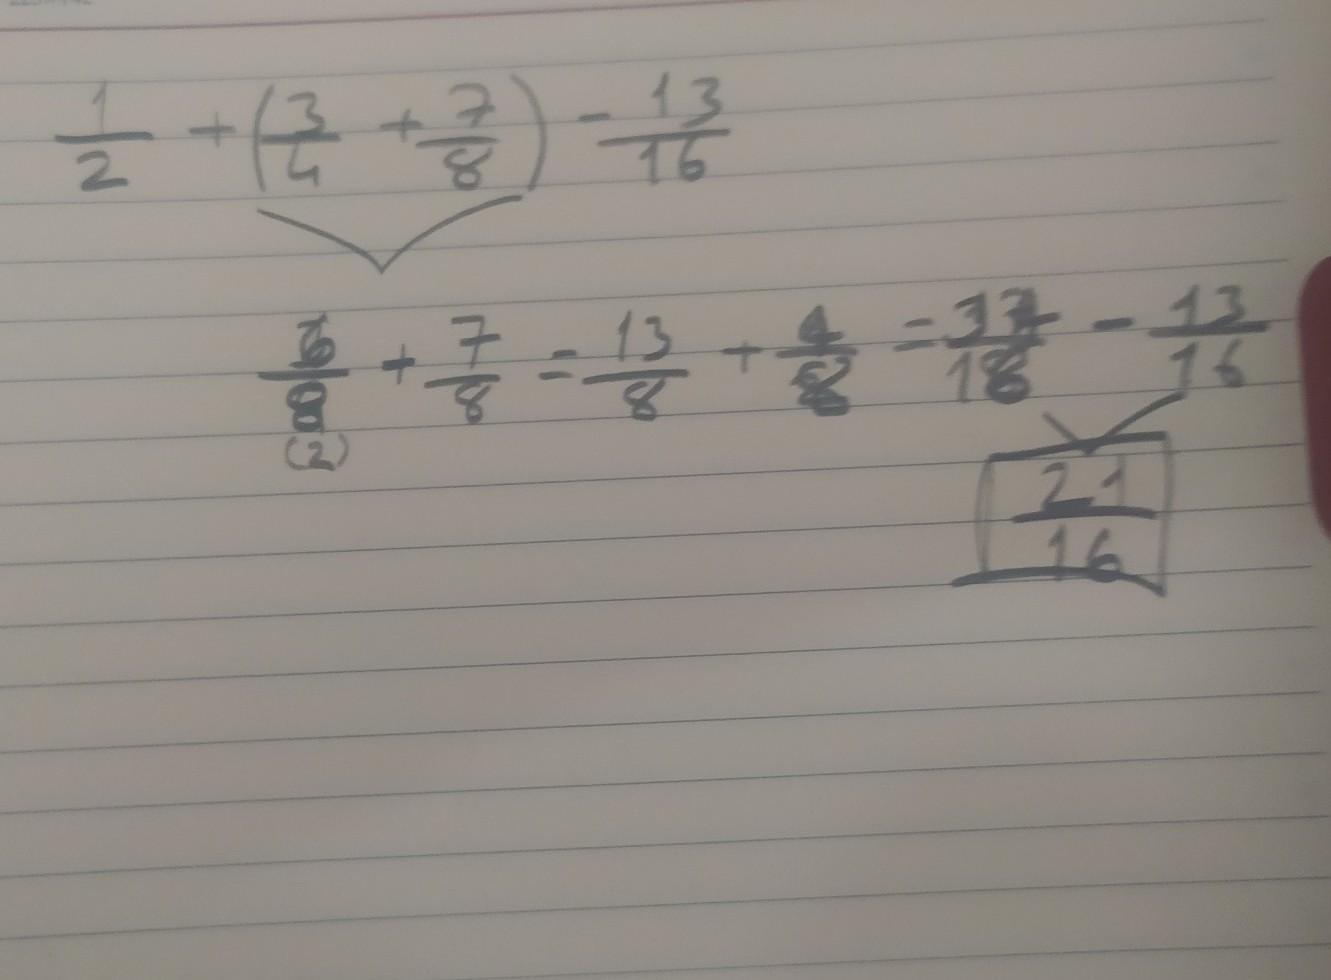 1/2 + (3/4 + 7/8) - 13/16
6/8 + 7/8 = 13/8 + 4/8 = 34/16 - 13/16
(2)
21/16